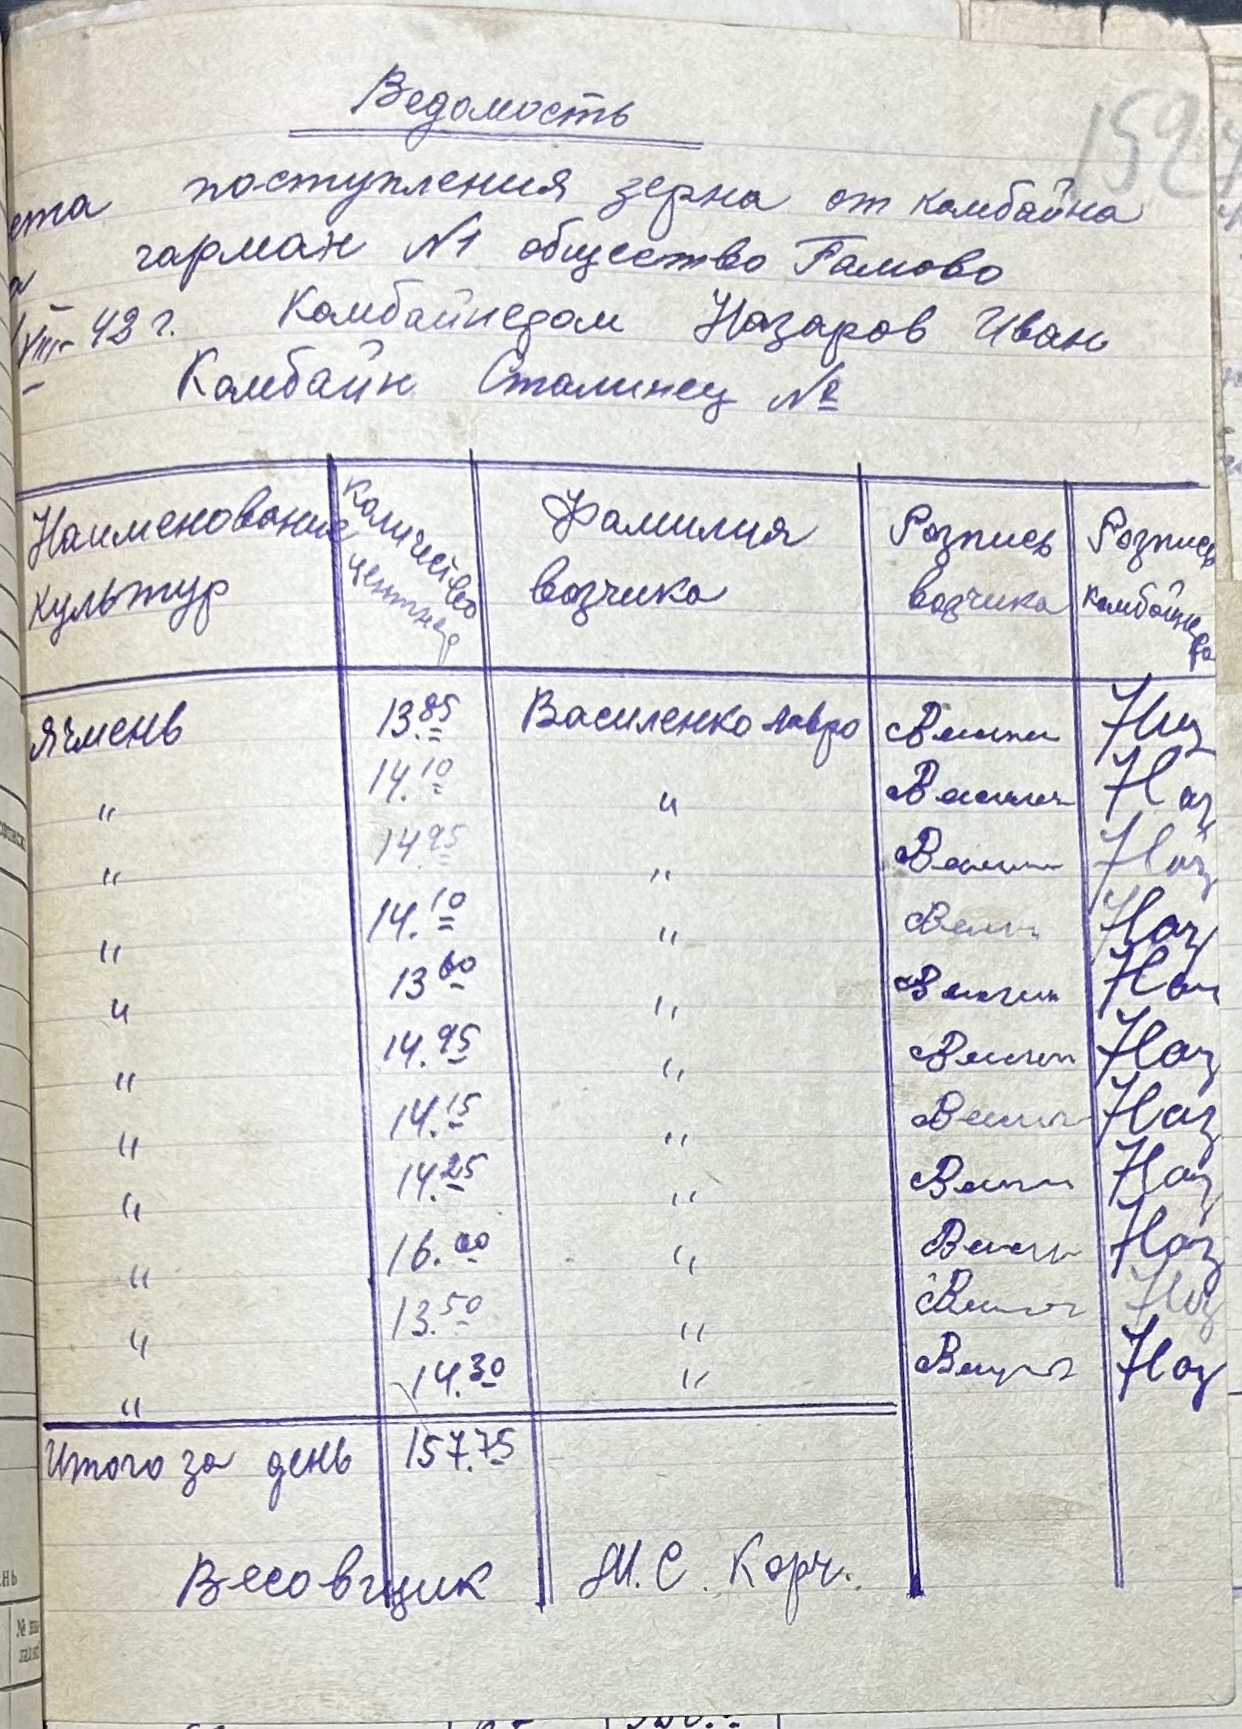 Ведомость
поступления зерна от комбайна
гарман №1 общество Гамово
VIII 42 г. Комбайнером Назаров Иван
Комбайн Сталинец №
Наименование культур Количество центнер Фамилия возчика Розпись возчика Розпись комбайнера
Ячмень 13.85 Василенко Лавро Наз
" 14.10 " Наз
" 14.95 " Наз
" 14.10 " Наз
" 13.60 " Наз
" 14.95 " Наз
" 14.15 " Наз
" 14.25 " Наз
" 16.00 " Наз
" 13.50 " Наз
" 14.30 " Наз
Итого за день 157.75
Весовщик М.С. Корч.